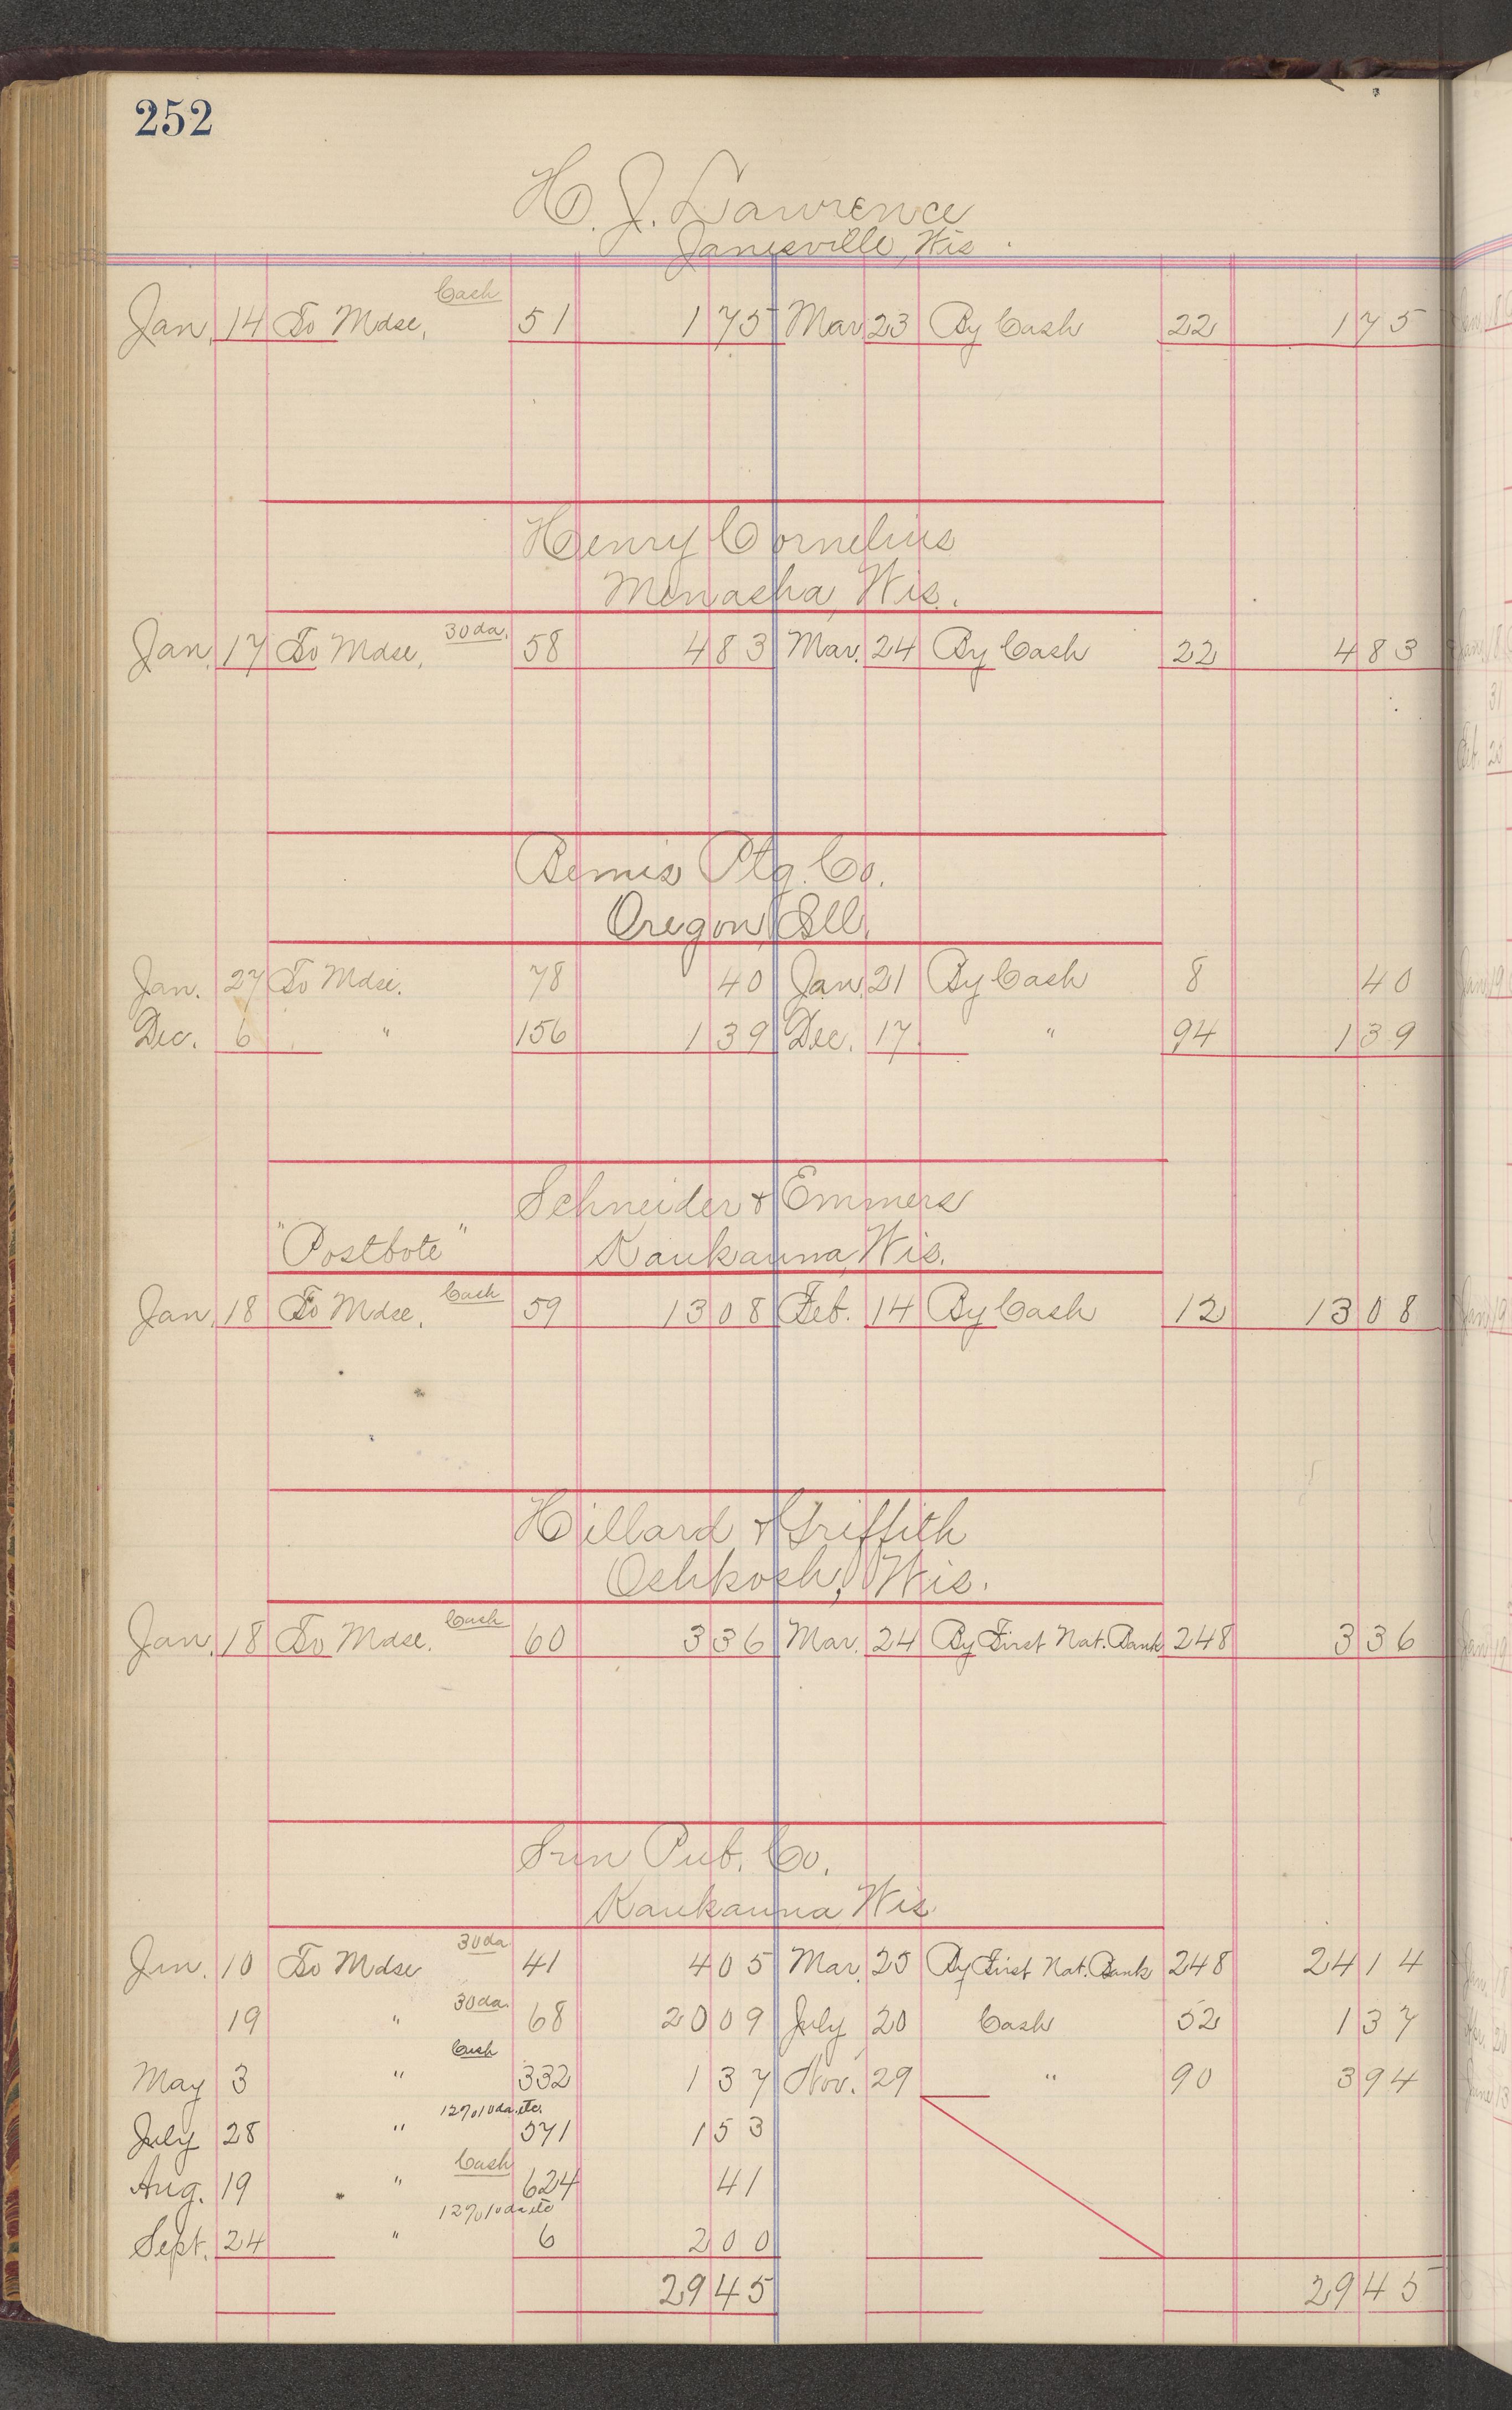 252
H. J. Lawrence
Janesville, Wis.
Cash
Jan. 14 To Mdse, 51 1 75 Mar. 23 By Cash 22 1 75
Henry Cornelius
Menasha, Wis.
30 da.
Jan. 17 To Mdse, 58 4 83 Mar. 24 By Cash 22 4 83
Bemis Ptg. Co.
Oregon, Ill.
Jan. 27 To Mdse. 78 40 Jan. 21 By Cash 8 40
Dec. 6 " 156 1 39 Dec. 17 " 94 1 39
Schneider & Emmers
"Postbote" Kaukauna, Wis.
Cash
Jan. 18 To Mdse, 59 13 08 Feb. 14 By Cash 12 13 08
Hillard & Griffith
Oshkosh, Wis.
Cash
Jan. 18 To Mdse. 60 3 36 Mar. 24 By First Nat. Bank 248 3 36
Sun Pub. Co.
Kaukauna Wis.
30 da
Jan. 10 To Mdse 41 4 05 Mar. 25 By First Nat. Bank 248 24 14
30 da.
19 " 68 20 09 July 20 Cash 52 1 37
Cash
May 3 " 332 1 37 Nov. 29 " 90 3 94
12% 10 da. etc.
July 28 " 571 1 53
Cash
Aug. 19 " 624 41
12% 10 da etc
Sept. 24 " 6 2 00
29 45 29 45